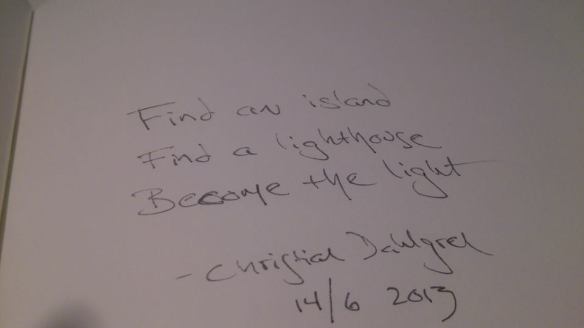 Find an island
Find a lighthouse
Become the light
- Christian Dahlgren
14/6 2013